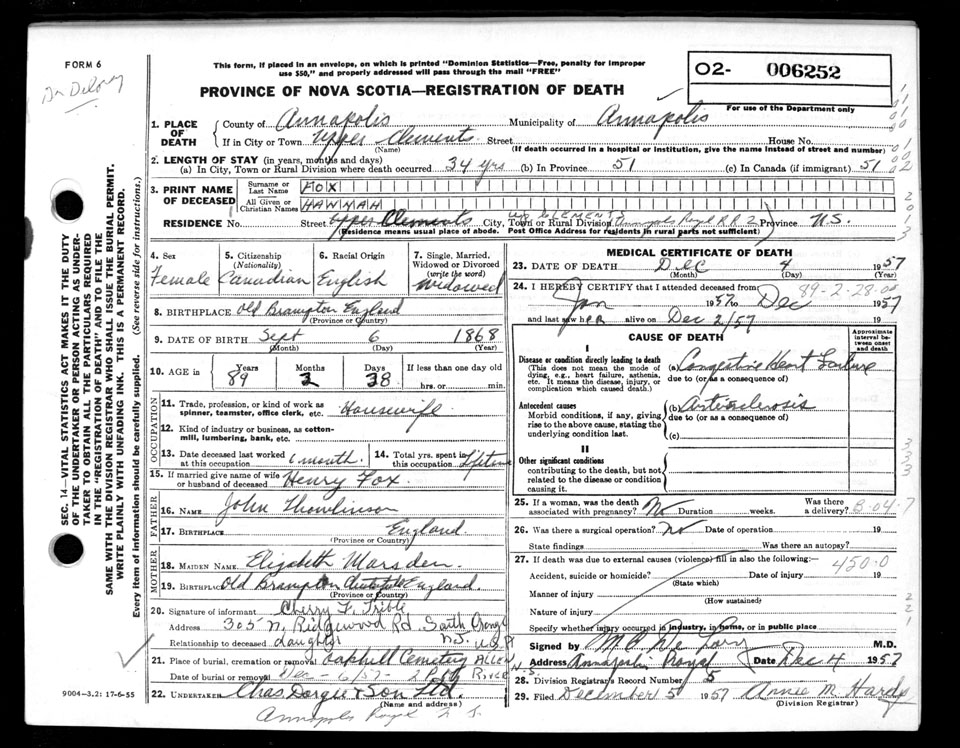 FORM 6
Dr DeLory
This form, if placed in an envelope, on which is printed "Dominion Statistics—Free, penalty for improper
use $50," and properly addressed will pass through the mail "FREE"
O2- 006252
For use of the Department only
PROVINCE OF NOVA SCOTIA—REGISTRATION OF DEATH
1. PLACE OF DEATH { County of Annapolis Municipality of Annapolis
If in City or Town Upper Clements Street House No.
(Name) (If death occurred in a hospital or institution, give the name instead of street and number)
2. LENGTH OF STAY (in years, months and days)
(a) In City, Town or Rural Division where death occurred 34 yrs (b) In Province 51 (c) In Canada (if immigrant) 51
3. PRINT NAME OF DECEASED { Surname or Last Name FOX
All Given or Christian Names HANNAH
RESIDENCE No. Street Upper Clements City, Town or Rural Division Up CLEMENTS Annapolis Royal R.R. 2 Province N.S.
(Residence means usual place of abode. Post Office Address for residents in rural parts not sufficient)
4. Sex Female
5. Citizenship (Nationality) Canadian
6. Racial Origin English
7. Single, Married, Widowed or Divorced (write the word) Widowed
8. BIRTHPLACE Old Brampton England
(Province or Country)
9. DATE OF BIRTH Sept 6 1868
(Month) (Day) (Year)
10. AGE in Years 89 Months 2 Days 28 If less than one day old hrs. or min.
OCCUPATION
11. Trade, profession, or kind of work as spinner, teamster, office clerk, etc. Housewife
12. Kind of industry or business, as cotton-mill, lumbering, bank, etc.
13. Date deceased last worked at this occupation 1 month.
14. Total yrs. spent in this occupation Lifetime
15. If married give name of wife or husband of deceased Henry Fox
FATHER
16. NAME John Thomlinson
17. BIRTHPLACE England
(Province or Country)
MOTHER
18. MAIDEN NAME Elizabeth Marsden
19. BIRTHPLACE Old Brampton Chesterfield England
(Province or Country)
20. Signature of informant Cherry F. Trible
Address 305 N. Ridgewood Rd South Orange N.J. USA
Relationship to deceased daughter
21. Place of burial, cremation or removal Oakhill Cemetery
Date of burial or removal Dec - 6/57 - 2 P.M.
22. UNDERTAKER Chas. Dargie & Son Ltd.
(Name and address)
Annapolis Royal N.S.
MEDICAL CERTIFICATE OF DEATH
23. DATE OF DEATH Dec 4 1957
(Month) (Day) (Year)
89-2-28-
24. I HEREBY CERTIFY that I attended deceased from
Jan 1957 to Dec 1957
and last saw her alive on Dec 2/57
CAUSE OF DEATH
Approximate interval between onset and death
I
Disease or condition directly leading to death
(This does not mean the mode of dying, e.g., heart failure, asthenia, etc. It means the disease, injury, or complication which caused death.)
(a) Congestive Heart Failure
due to (or as a consequence of)
Antecedent causes
Morbid conditions, if any, giving rise to the above cause, stating the underlying condition last.
(b) Arteriosclerosis
due to (or as a consequence of)
(c)
II
Other significant conditions
contributing to the death, but not related to the disease or condition causing it.
25. If a woman, was the death associated with pregnancy? No Duration weeks. Was there a delivery?
B-04-7
26. Was there a surgical operation? No Date of operation 19
State findings Was there an autopsy?
27. If death was due to external causes (violence) fill in also the following:
450-0
Accident, suicide or homicide? Date of injury 19
(State which)
Manner of injury
(How sustained)
Nature of injury
Specify whether injury occurred in industry, in home, or in public place
Signed by M.D.
Address Annapolis Royal N.S. Date Dec 4 1957
28. Division Registrar's Record Number 5
29. Filed December 5 1957 Annie M. Hardy
(Division Registrar)
SEC. 14—VITAL STATISTICS ACT MAKES IT THE DUTY
OF THE UNDERTAKER OR PERSON ACTING AS UNDER-
TAKER TO OBTAIN ALL THE PARTICULARS REQUIRED
IN THE "REGISTRATION OF DEATH" AND TO FILE THE
SAME WITH THE DIVISION REGISTRAR WHO SHALL ISSUE THE BURIAL PERMIT.
WRITE PLAINLY WITH UNFADING INK. THIS IS A PERMANENT RECORD.
Every item of information should be carefully supplied. (See reverse side for instructions.)
9004-3.2: 17-6-55